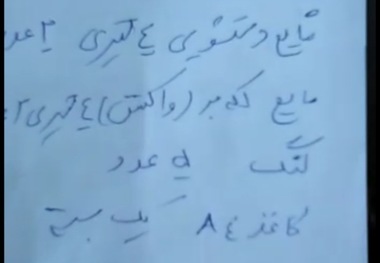 مایع دستشویی ٤ لیتری ٢ عدد
مایع کف بر (واکس) ٤ لیتری ٢
لنگ ٥ عدد
کاغذ A٤ یک بسته